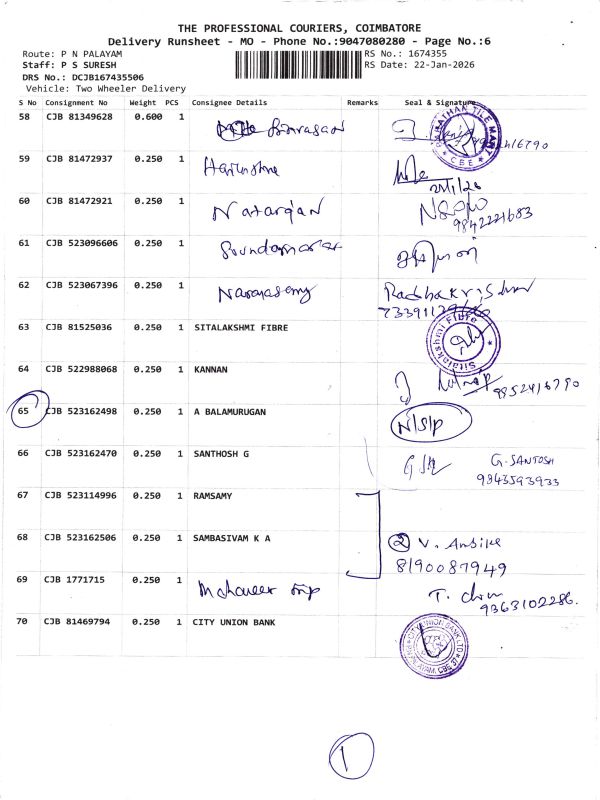 THE PROFESSIONAL COURIERS, COIMBATORE
Delivery Runsheet - MO - Phone No.:9047080280 - Page No.:6
Route: P N PALAYAM RS No.: 1674355
Staff: P S SURESH RS Date: 22-Jan-2026
DRS No.: DCJB167435506
Vehicle: Two Wheeler Delivery
S No Consignment No Weight PCS Consignee Details Remarks Seal & Signature
58 CJB 81349628 0.600 1
59 CJB 81472937 0.250 1
60 CJB 81472921 0.250 1 Natarajan
9842221683
61 CJB 523096606 0.250 1
62 CJB 523067396 0.250 1 Narayasamy Radhakrishnan
63 CJB 81525036 0.250 1 SITALAKSHMI FIBRE Sitalakshmi Fibre
64 CJB 522988068 0.250 1 KANNAN
9852416790
65 CJB 523162498 0.250 1 A BALAMURUGAN N/S/P
66 CJB 523162470 0.250 1 SANTHOSH G G. SANTOSH
9843593933
67 CJB 523114996 0.250 1 RAMSAMY
68 CJB 523162506 0.250 1 SAMBASIVAM K A 2 V.
8190087949
69 CJB 1771715 0.250 1 Mahaveer T.
9363102286.
70 CJB 81469794 0.250 1 CITY UNION BANK CITY UNION BANK LTD
1